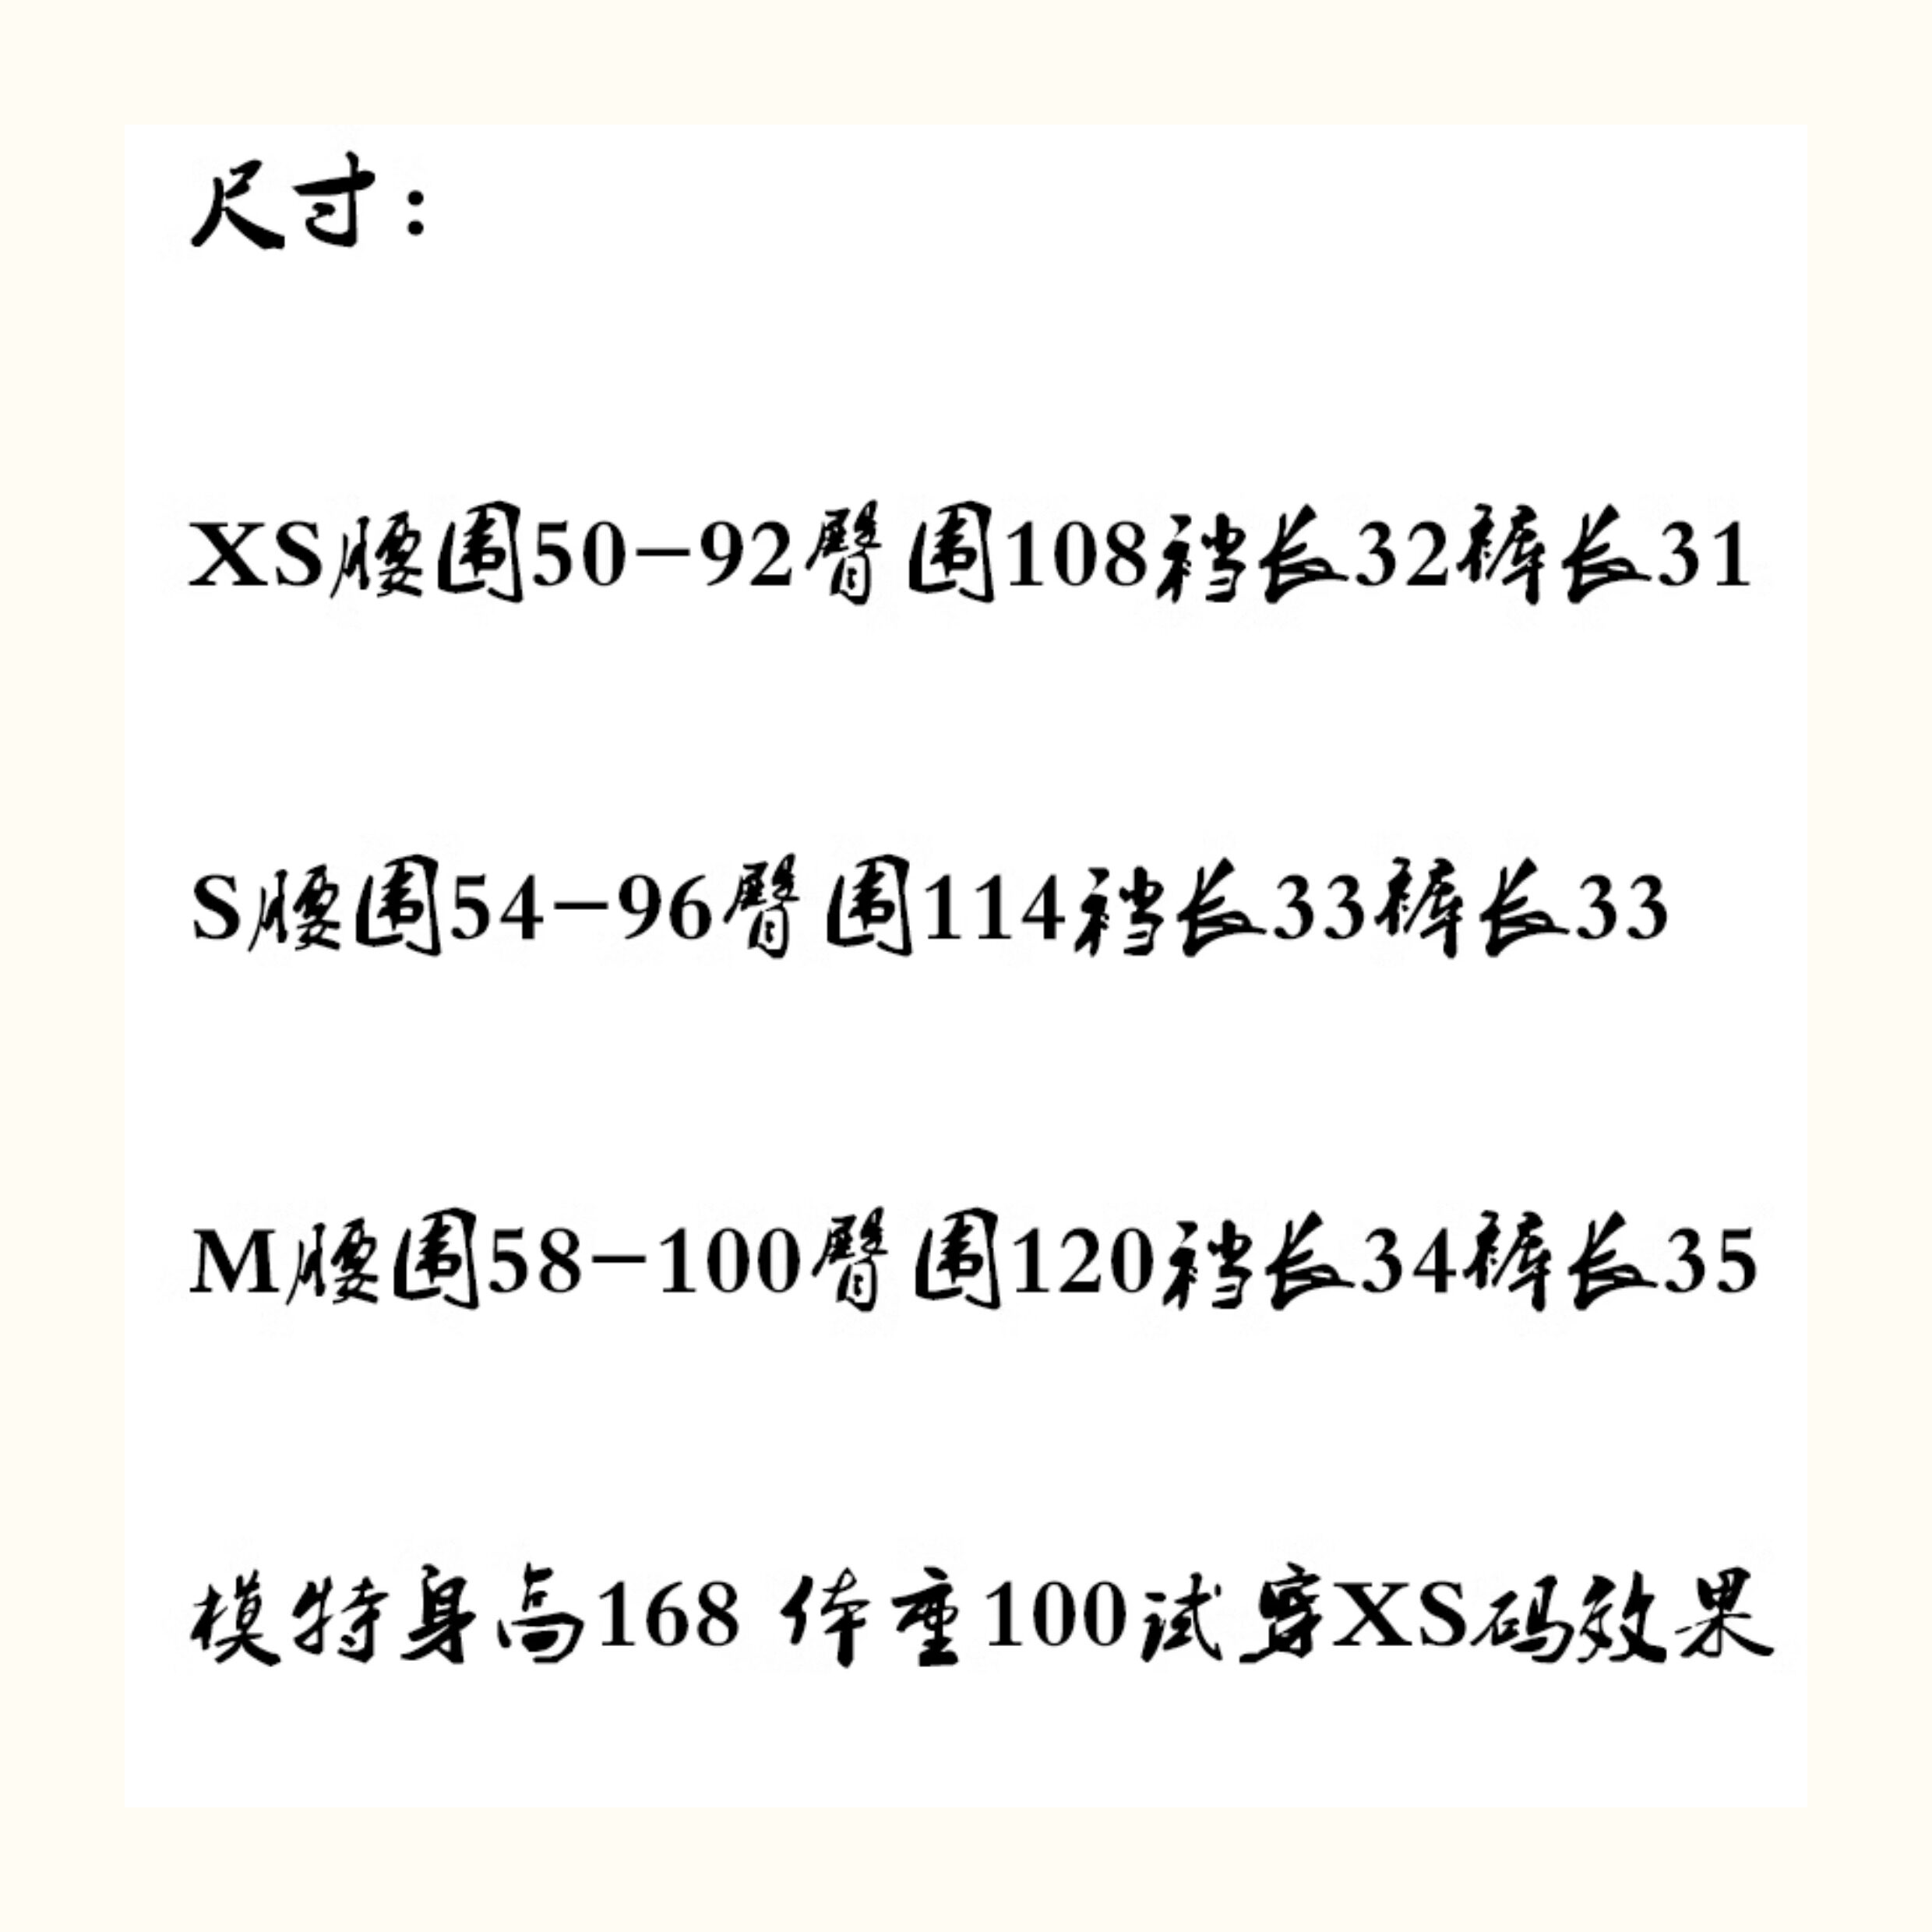 尺寸：
XS腰围50-92臀围108裆长32裤长31
S腰围54-96臀围114裆长33裤长33
M腰围58-100臀围120裆长34裤长35
模特身高168 体重100试穿XS码效果